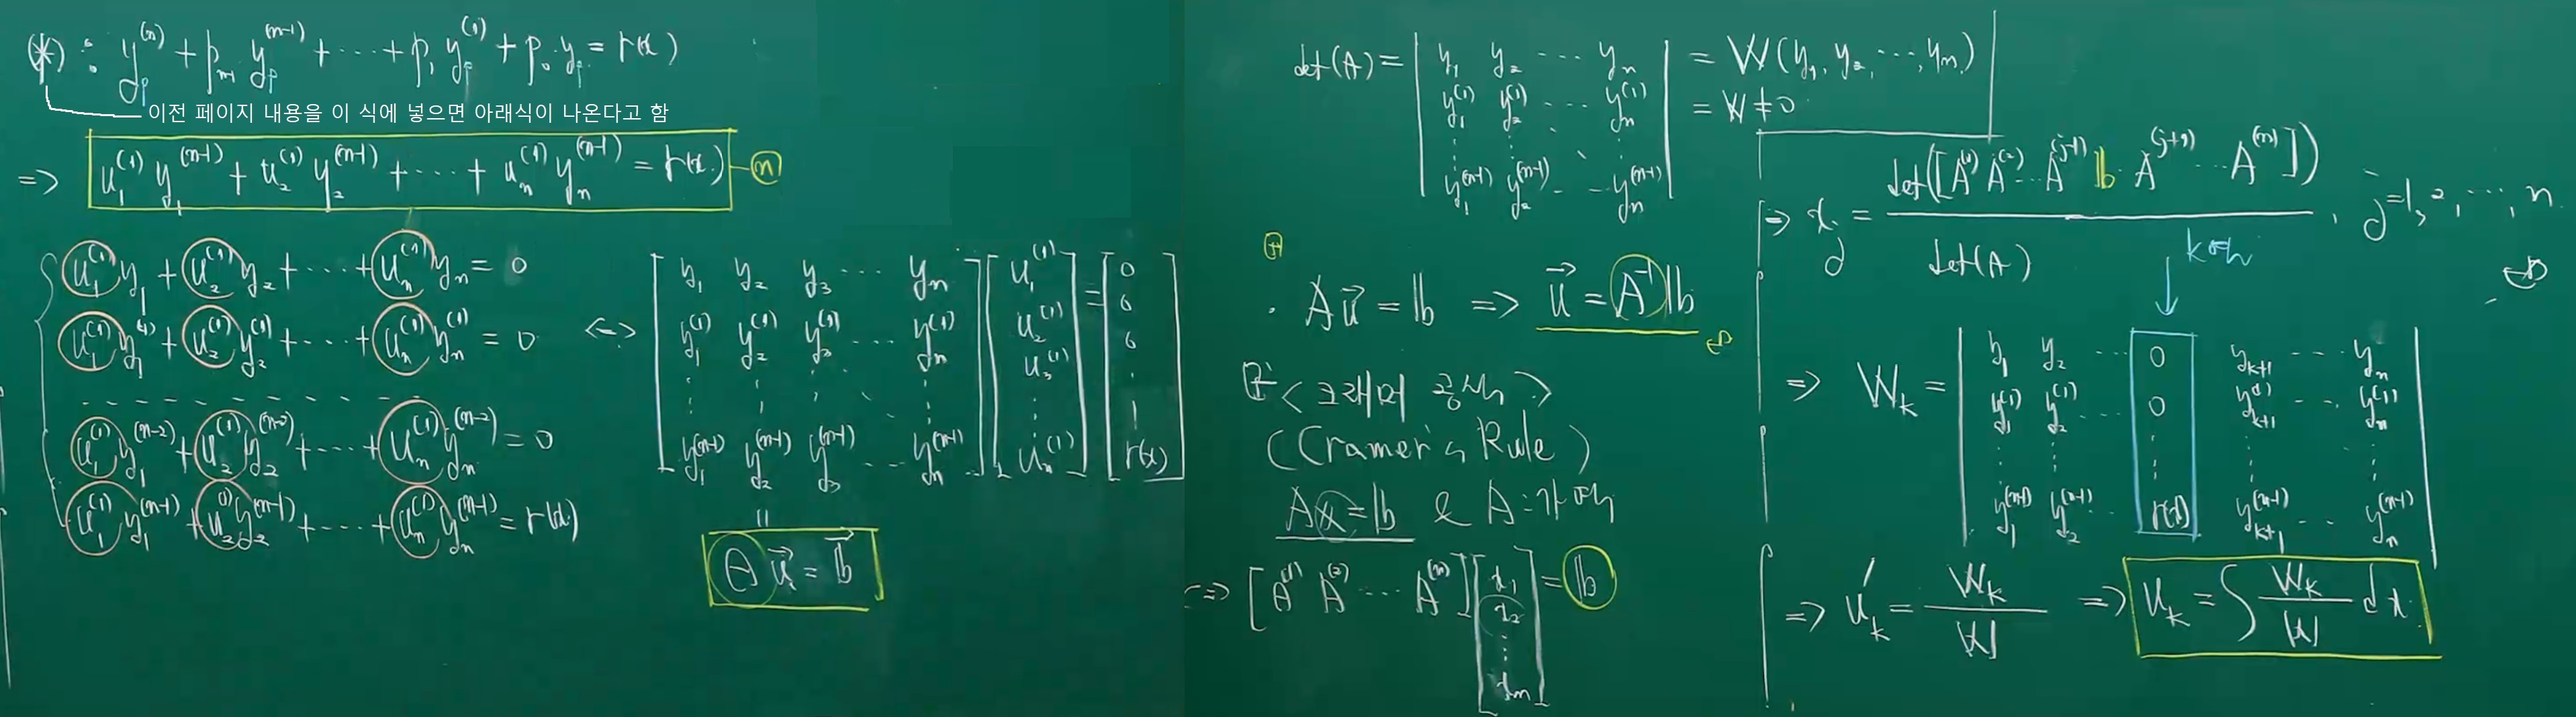 (*) : y_p^(n) + p_{n-1} y_p^(n-1) + ··· + p_1 y_p^(1) + p_0 y_p = r(x)
이전 페이지 내용을 이 식에 넣으면 아래식이 나온다고 함
=> u_1^(1) y_1^(n-1) + u_2^(1) y_2^(n-1) + ··· + u_n^(1) y_n^(n-1) = r(x) - ⓝ
u_1^(1) y_1 + u_2^(1) y_2 + ··· + u_n^(1) y_n = 0
u_1^(1) y_1^(1) + u_2^(1) y_2^(1) + ··· + u_n^(1) y_n^(1) = 0
- - - - - - - - - -
u_1^(1) y_1^(n-2) + u_2^(1) y_2^(n-2) + ··· + u_n^(1) y_n^(n-2) = 0
u_1^(1) y_1^(n-1) + u_2^(1) y_2^(n-1) + ··· + u_n^(1) y_n^(n-1) = r(x)
<->
[ y_1 y_2 y_3 ··· y_n ] [ u_1^(1) ] = [ 0 ]
[ y_1^(1) y_2^(1) y_3^(1) ··· y_n^(1) ] [ u_2^(1) ] [ 0 ]
[ ⋮ ⋮ ⋮ ⋱ ⋮ ] [ u_3^(1) ⋮ ] [ 0 ⋮ ]
[ y_1^(n-1) y_2^(n-1) y_3^(n-1) ··· y_n^(n-1) ] [ u_n^(1) ] [ r(x) ]
||
A u⃗ = b⃗
det(A) = | y_1 y_2 ··· y_n | = W(y_1, y_2, ···, y_n)
| y_1^(1) y_2^(1) ··· y_n^(1) | = W ≠ 0
| ⋮ ⋮ ⋱ ⋮ |
| y_1^(n-1) y_2^(n-1) ··· y_n^(n-1) |
⊞
· A u⃗ = b => u⃗ = A^-1 b
<크래머 공식>
(Cramer's Rule)
Ax = b & A : 가역
<=> [ A^(1) A^(2) ··· A^(n) ] [ x_1 x_2 ⋮ x_n ] = b
=> x_j = det([A^(1) A^(2) ··· A^(j-1) b A^(j+1) ··· A^(n)]) / det(A) , j=1, 2, ···, n.
k열
=> W_k = | y_1 y_2 ··· 0 y_{k+1} ··· y_n |
| y_1^(1) y_2^(1) ··· 0 y_{k+1}^(1) ··· y_n^(1) |
| ⋮ ⋮ ⋮ ⋮ ⋮ |
| y_1^(n-1) y_2^(n-1) ··· r(x) y_{k+1}^(n-1) ··· y_n^(n-1) |
=> u_k' = W_k / W => u_k = ∫ W_k / W dx